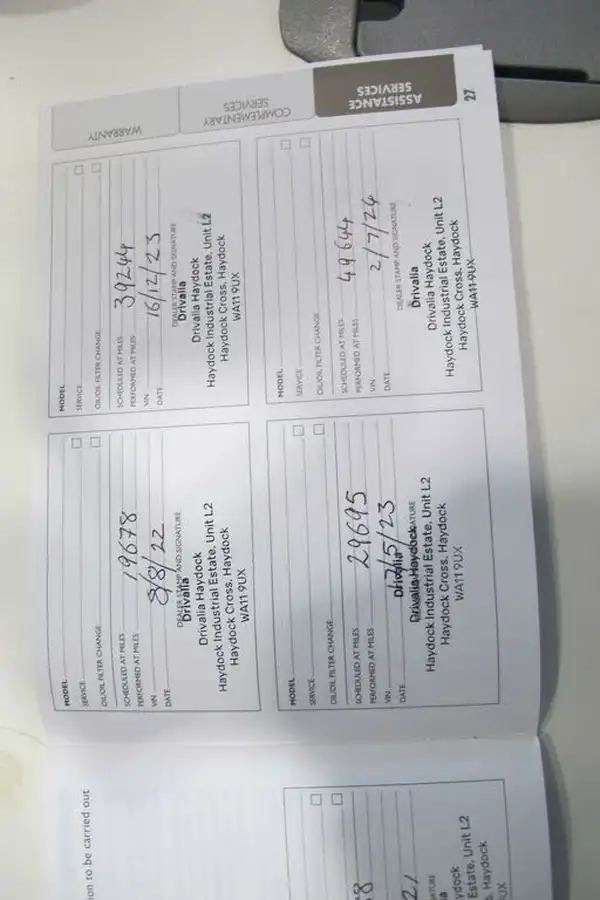 ion to be carried out
8
21
ATURE
ydock
Estate, Unit L2
Haydock
UX
MODEL
SERVICE
OIL/OIL FILTER CHANGE
SCHEDULED AT MILES
PERFORMED AT MILES 19678
VIN
DATE 8/8/22
DEALER STAMP AND SIGNATURE
Drivalia
Drivalia Haydock
Haydock Industrial Estate, Unit L2
Haydock Cross, Haydock
WA11 9UX
MODEL
SERVICE
OIL/OIL FILTER CHANGE
SCHEDULED AT MILES
PERFORMED AT MILES 39244
VIN
DATE 16/12/23
DEALER STAMP AND SIGNATURE
Drivalia
Drivalia Haydock
Haydock Industrial Estate, Unit L2
Haydock Cross, Haydock
WA11 9UX
MODEL
SERVICE
OIL/OIL FILTER CHANGE
SCHEDULED AT MILES
PERFORMED AT MILES 29695
VIN
DATE 17/5/23
Drivalia
Drivalia Haydock
Haydock Industrial Estate, Unit L2
Haydock Cross, Haydock
WA11 9UX
MODEL
SERVICE
OIL/OIL FILTER CHANGE
SCHEDULED AT MILES
PERFORMED AT MILES 49644
VIN
DATE 2/7/24
DEALER STAMP AND SIGNATURE
Drivalia
Drivalia Haydock
Haydock Industrial Estate, Unit L2
Haydock Cross, Haydock
WA11 9UX
WARRANTY
COMPLEMENTARY
SERVICES
ASSISTANCE
SERVICES
27